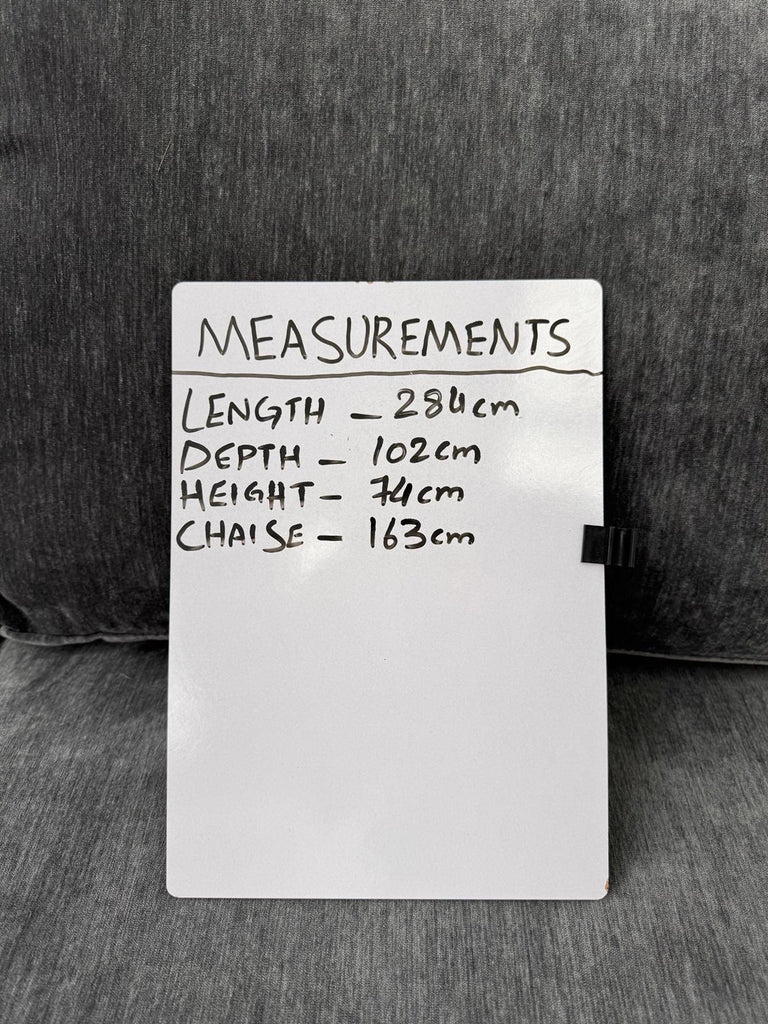 MEASUREMENTS
LENGTH - 284cm
DEPTH - 102cm
HEIGHT - 74cm
CHAISE - 163cm